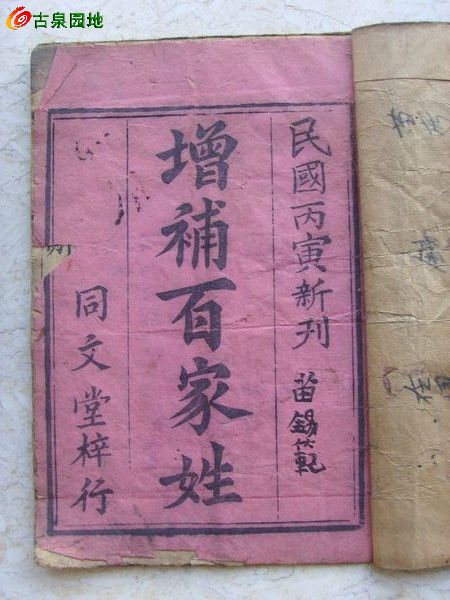 古泉园地
民國丙寅新刋
增補百家姓
同文堂梓行